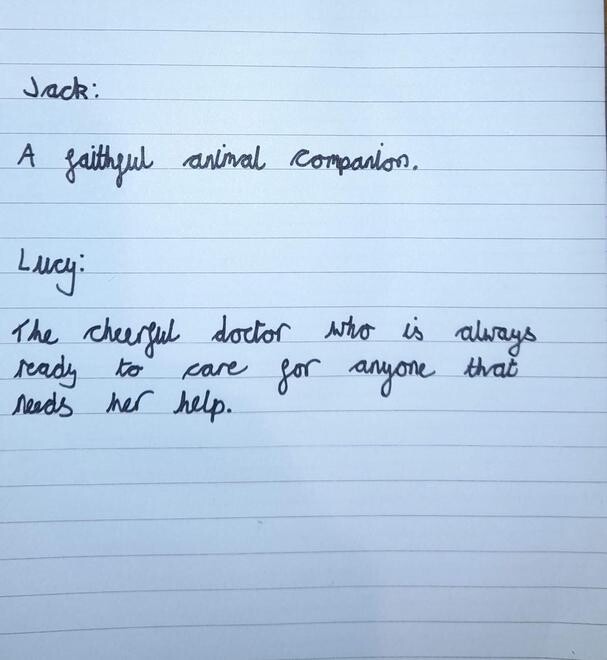 Jack:
A faithful animal companion.
Lucy:
The cheerful doctor who is always
ready to care for anyone that
needs her help.